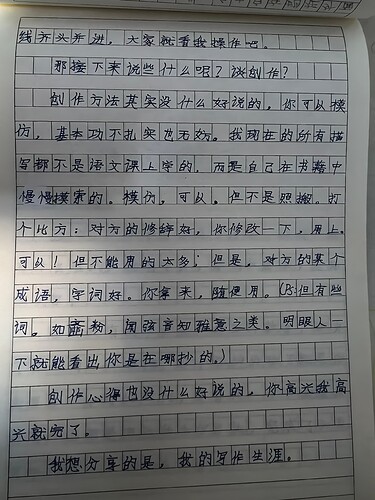 线齐头并进，大家就看我操作吧。
那接下来说些什么呢？谈创作？
创作方法其实没什么好说的，你可以模
仿，基本功不扎实也无妨。我现在的所有描
写都不是语文课上学的，而是自己在书籍中
慢慢摸索的。模仿，可以。但不是照搬。打
个比方：对方的修辞好，你修改一下，用上。
可以！但不能用的太多；但是，对方的某个
成语，字词好。你拿来，随便用。（PS：但有些
词。如齑粉，闻弦音知雅意之类。明眼人一
下就能看出你是在哪抄的。）
创作心得也没什么好说的，你高兴我高
兴就完了。
我想分享的是，我的写作生涯。